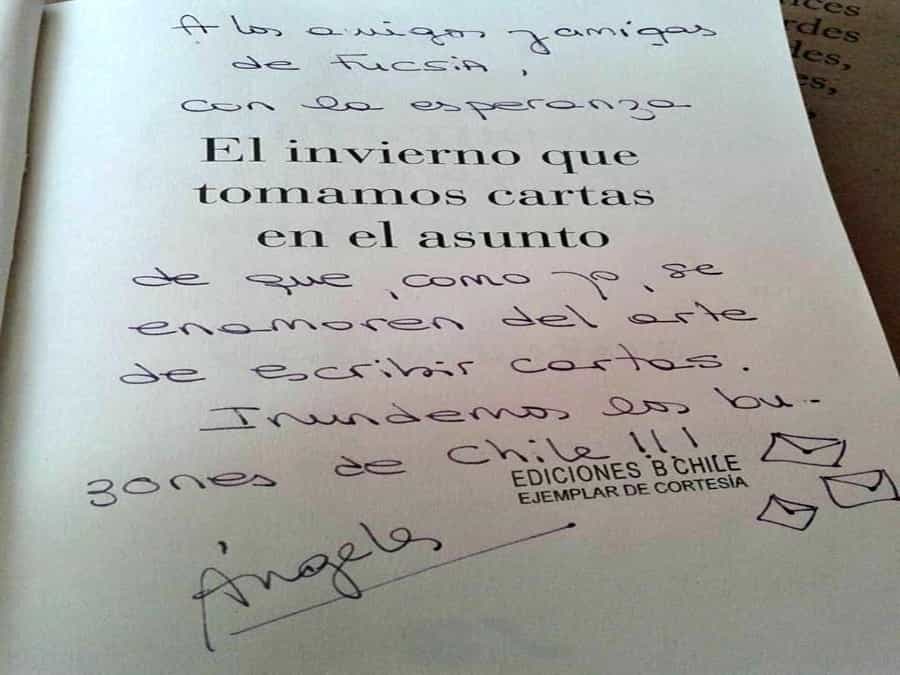 A los amigos y amigas
de FUCSIA,
con la esperanza
El invierno que
tomamos cartas
en el asunto
de que, como yo, se
enamoren del arte
de escribir cartas.
Inundemos los bu-
zones de Chile!!!
EDICIONES B CHILE
EJEMPLAR DE CORTESÍA
Ángeles